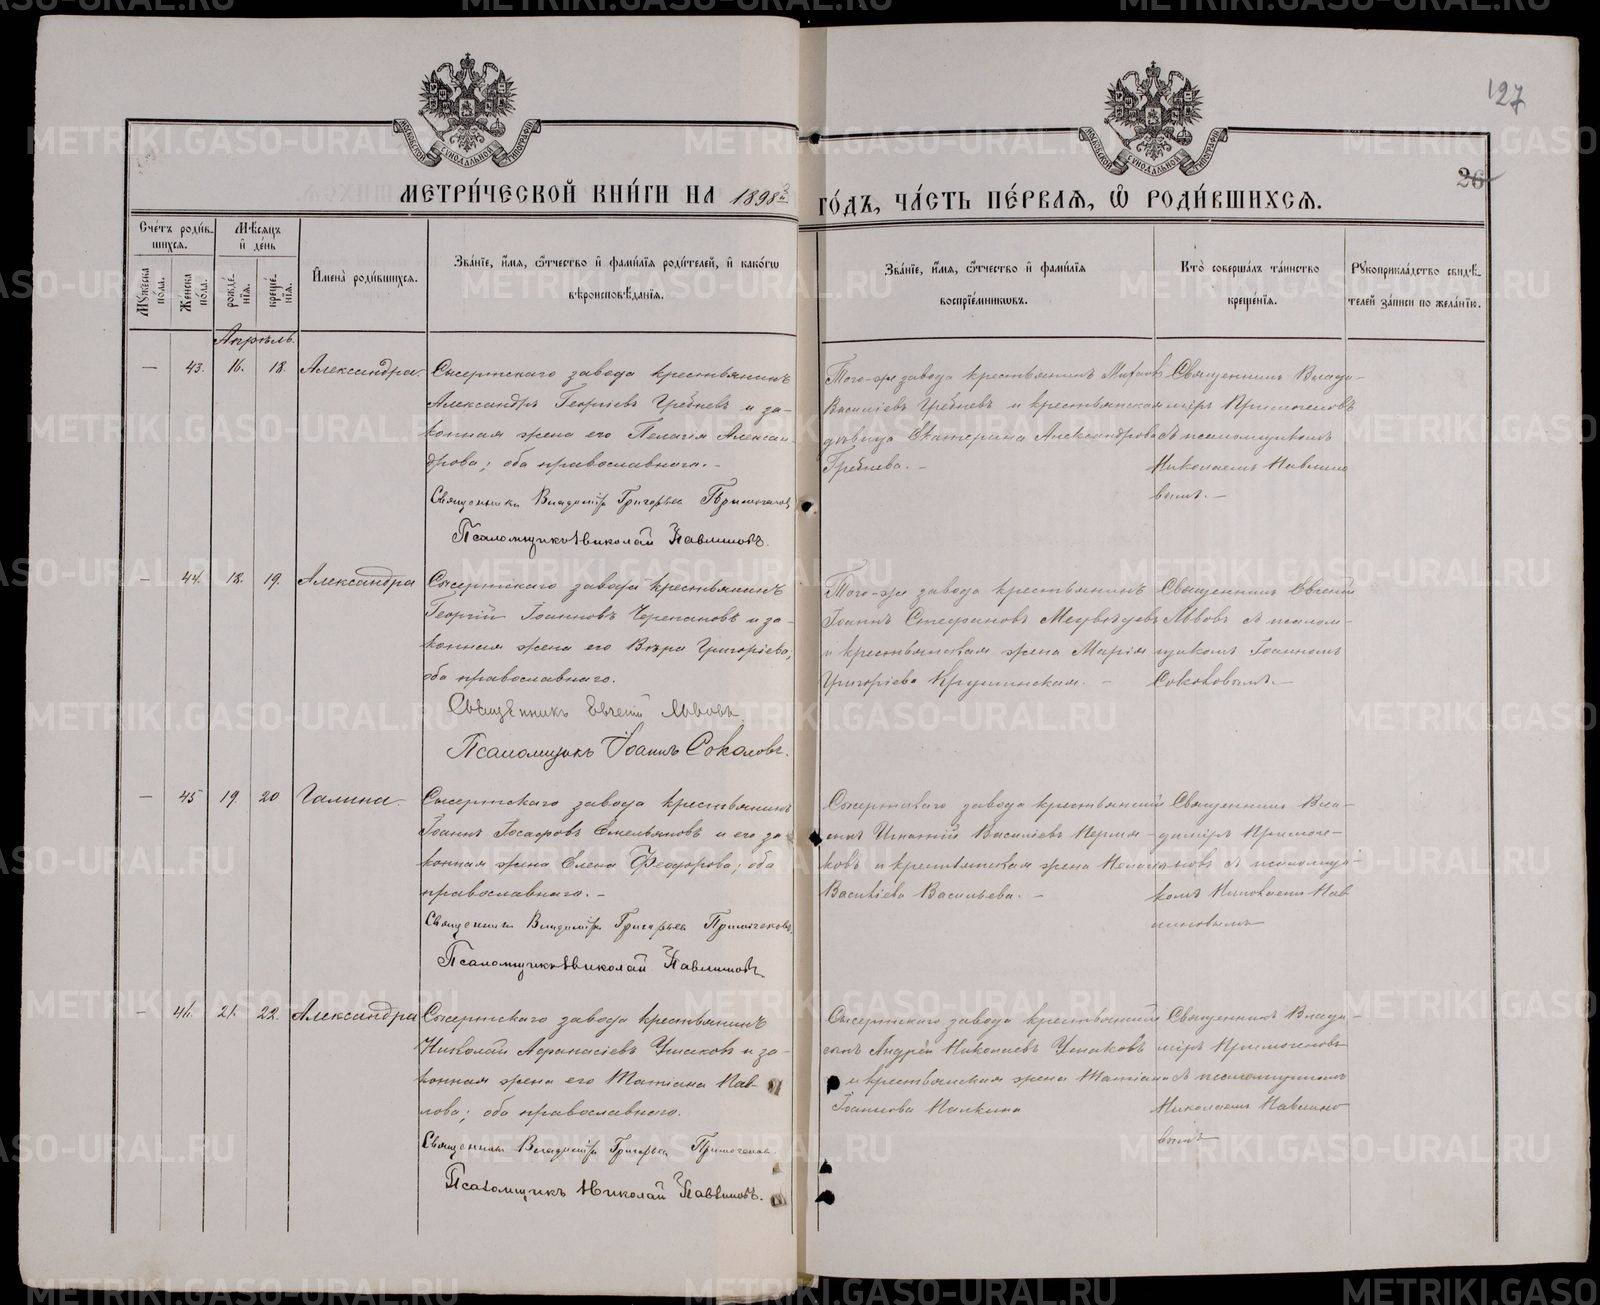 127
26
МЕТРИ́ЧЕСКОЙ КНИ́ГИ НА 1898й ГО́ДЪ, ЧА́СТЬ ПЕ́РВАЯ, Ѽ РОДИ́ВШИХСЯ.
Сче́тъ роди́вшихся.
Мꙋ́жеска по́ла.
Же́нска по́ла.
Мѣ́сяцъ и҆ де́нь
рожде́нїя.
креще́нїя.
И҆мена̀ роди́вшихся.
Зва́нїе, и҆́мя, ѻ҆́тчество и҆ фами́лїя роди́телей, и҆ како́гѡ
вѣроисповѣ́данїя.
Зва́нїе, и҆́мя, ѻ҆́тчество и҆ фами́лїя
воспрїе́мникѡвъ.
Кто̀ соверша́лъ та́инство
креще́нїя.
Рꙋкоприкла́дство свидѣ́-
телей за́писи по жела́нїю.
Апрѣль.
— 43. 16. 18. Александра.
Сысертскаго завода крестьянинъ
Александръ Георгіевъ Гребневъ и за-
конная жена его Пелагія Алексан
дрова; оба православнаго. –
Священникъ Владиміръ Григорьевъ Примогеновъ
Псаломщикъ Николай Павлиновъ.
Того-же завода крестьянинъ
Василіевъ Гребневъ и крестьянская
дѣвица Екатерина Александрова
Гребнева. –
Священникъ Влади-
міръ Примогеновъ
съ псаломщикомъ
Николаемъ Павлино
вымъ. –
— 44. 18. 19. Александра
Сысертскаго завода крестьянинъ
Георгій Іоанновъ Черепановъ и за-
конная жена его Вѣра Григоріева;
оба православнаго.
Священникъ Евгеній Львовъ.
Псаломщикъ Іоаннъ Соколовъ.
Того-же завода крестьянинъ
Іоаннъ Стефановъ Медвѣдевъ
и крестьянская жена Марія
Григоріева Крушинская. –
Священникъ Евгеній
Львовъ съ псалом-
щикомъ Іоанномъ
Соколовымъ. –
— 45 19. 20 Галина.
Сысертскаго завода крестьянинъ
Іоаннъ Іосафовъ Емельяновъ и его за
конная жена Елена Ѳеодорова; оба
православнаго. –
Священникъ Владиміръ Григорьевъ Примогеновъ
Псаломщикъ Николай Павлиновъ
Сысертскаго завода крестьянскій
сынъ Игнатій Василіевъ Пермя-
ковъ и крестьянская жена
Василіева Васильева. –
Священникъ Вла-
диміръ Примоге-
новъ съ псаломщи-
комъ Николаемъ Пав
линовымъ
— 46. 21. 22. Александра
Сысертскаго завода крестьянинъ
Николай Аѳанасіевъ Ушаковъ и за-
конная жена его Татіана Пав
лова; оба православнаго.
Священникъ Владиміръ Григорьевъ Примогеновъ
Псаломщикъ Николай Павлиновъ.
Сысертскаго завода крестьянскій
сынъ Андрей Николаевъ Ушаковъ
и крестьянская жена Татіана
Іоаннова Палкина
Священникъ Влади-
міръ Примогеновъ
съ псаломщикомъ
Николаемъ Павлино
вымъ
METRIKI.GASO-URAL.RU